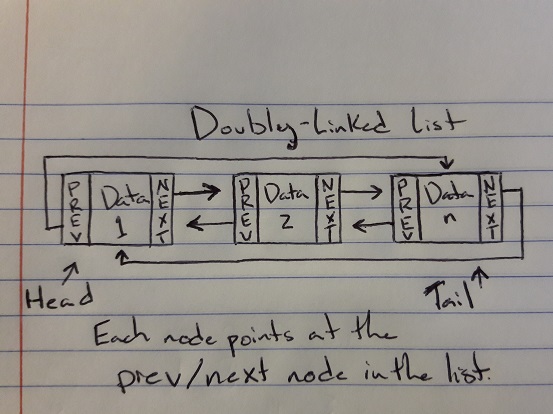 Doubly-Linked List
PREV Data 1 NEXT PREV Data 2 NEXT PREV Data n NEXT
Head Tail
Each node points at the
prev/next node in the list.